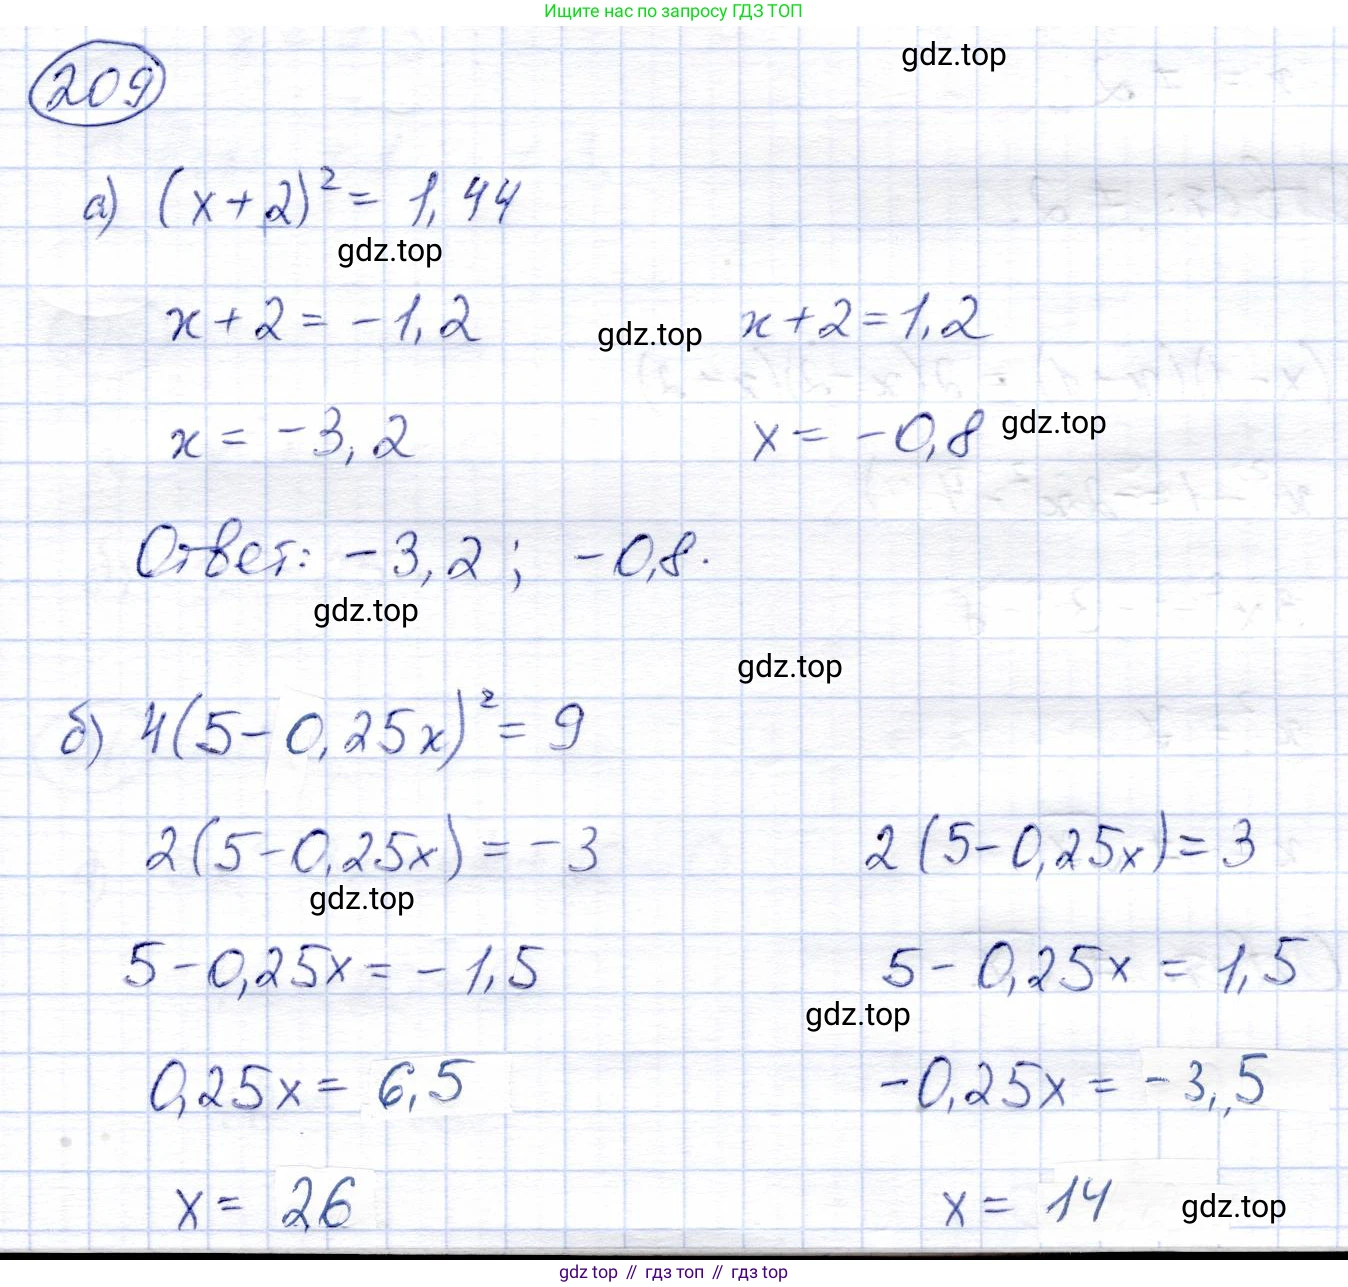 Ищите нас по запросу ГДЗ ТОП
gdz.top
209
а) (x+2)² = 1,44
gdz.top
x+2 = -1,2 gdz.top x+2 = 1,2
x = -3,2 x = -0,8 gdz.top
Ответ: -3,2 ; -0,8.
gdz.top
gdz.top
б) 4(5-0,25x)² = 9
2(5-0,25x) = -3 2(5-0,25x) = 3
gdz.top
5-0,25x = -1,5 5-0,25x = 1,5
gdz.top
0,25x = 6,5 -0,25x = -3,5
x = 26 x = 14 gdz.top
gdz top // гдз топ // гдз top